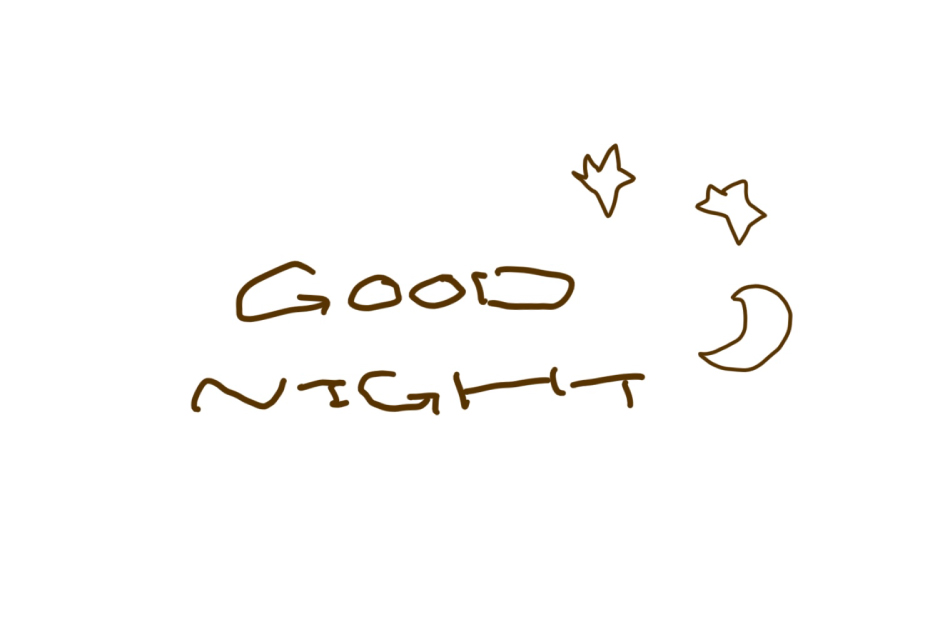 GOOD
NIGHT